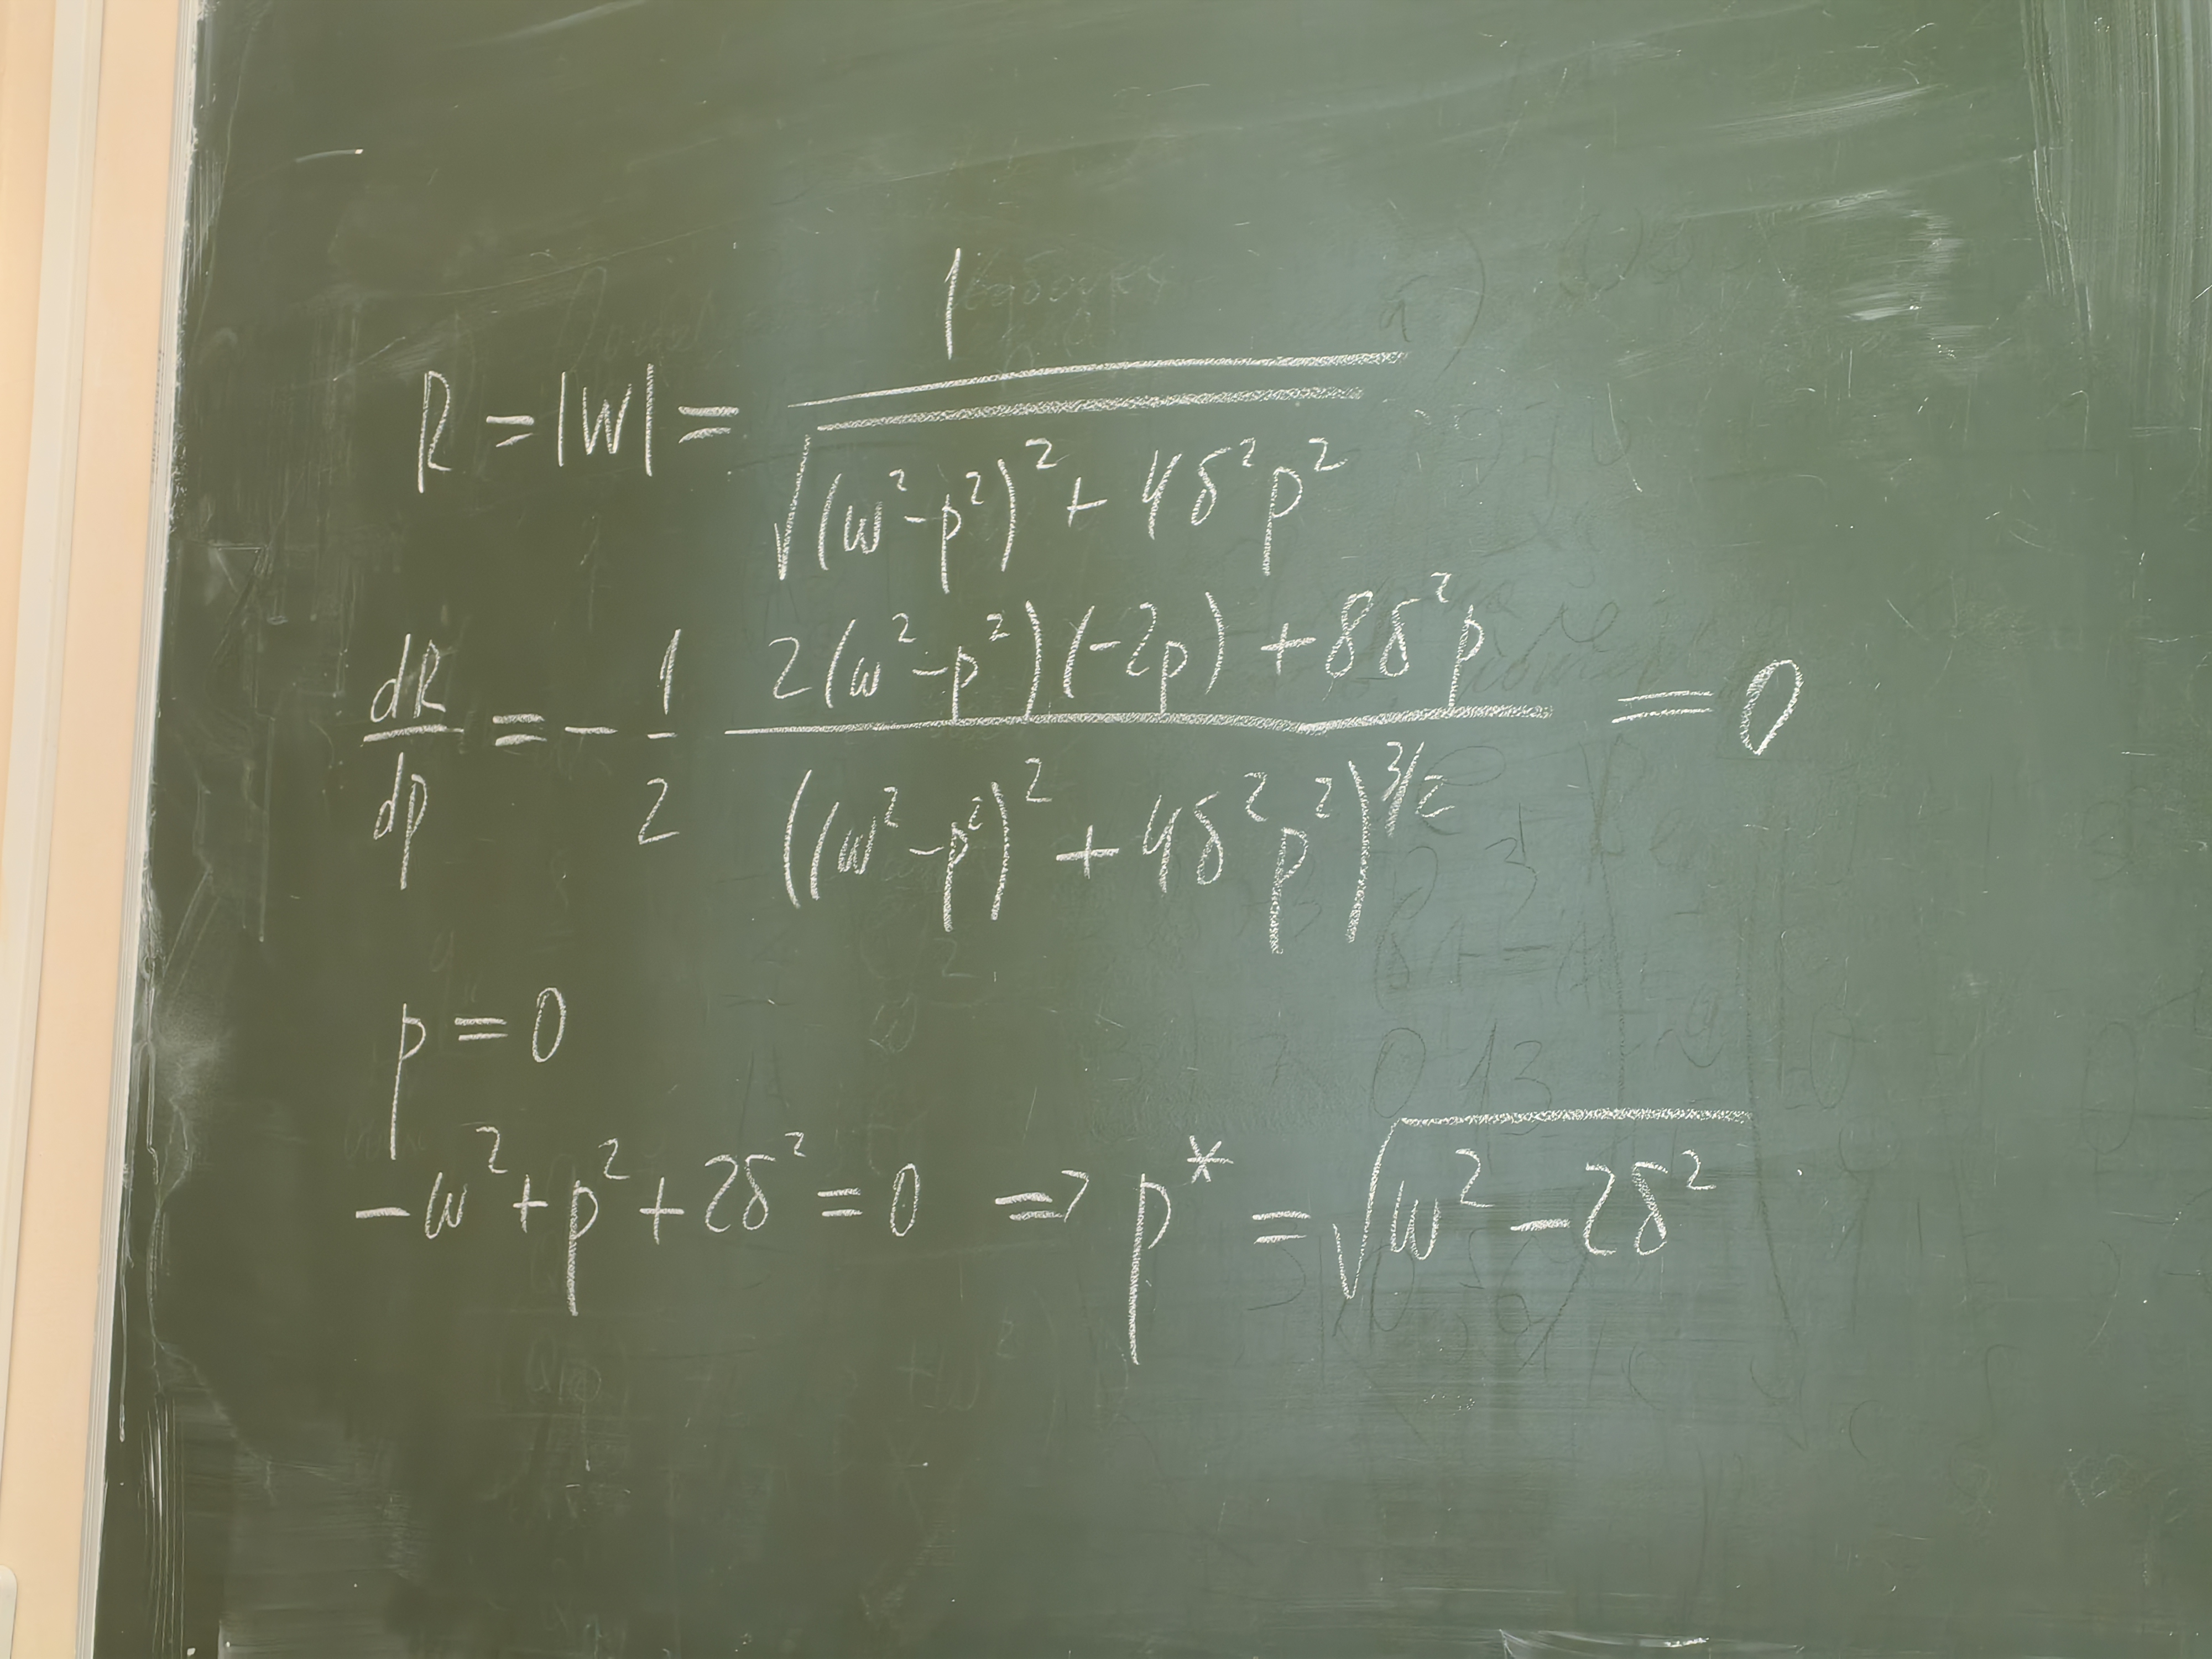 R = |W| = 1 / √((ω² - p²)² + 4δ²p²)
dR/dp = - 1/2 (2(ω² - p²)(-2p) + 8δ²p) / ((ω² - p²)² + 4δ²p²)^(3/2) = 0
p = 0
-ω² + p² + 2δ² = 0 => p* = √(ω² - 2δ²)